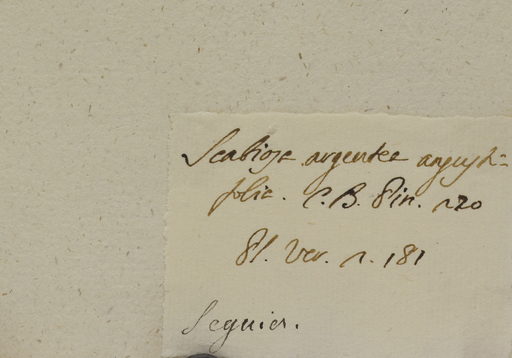 Scabiosa argentea angusti=
folia. C. B. Pin. 270
Pl. Ver. n. 181
Seguier.